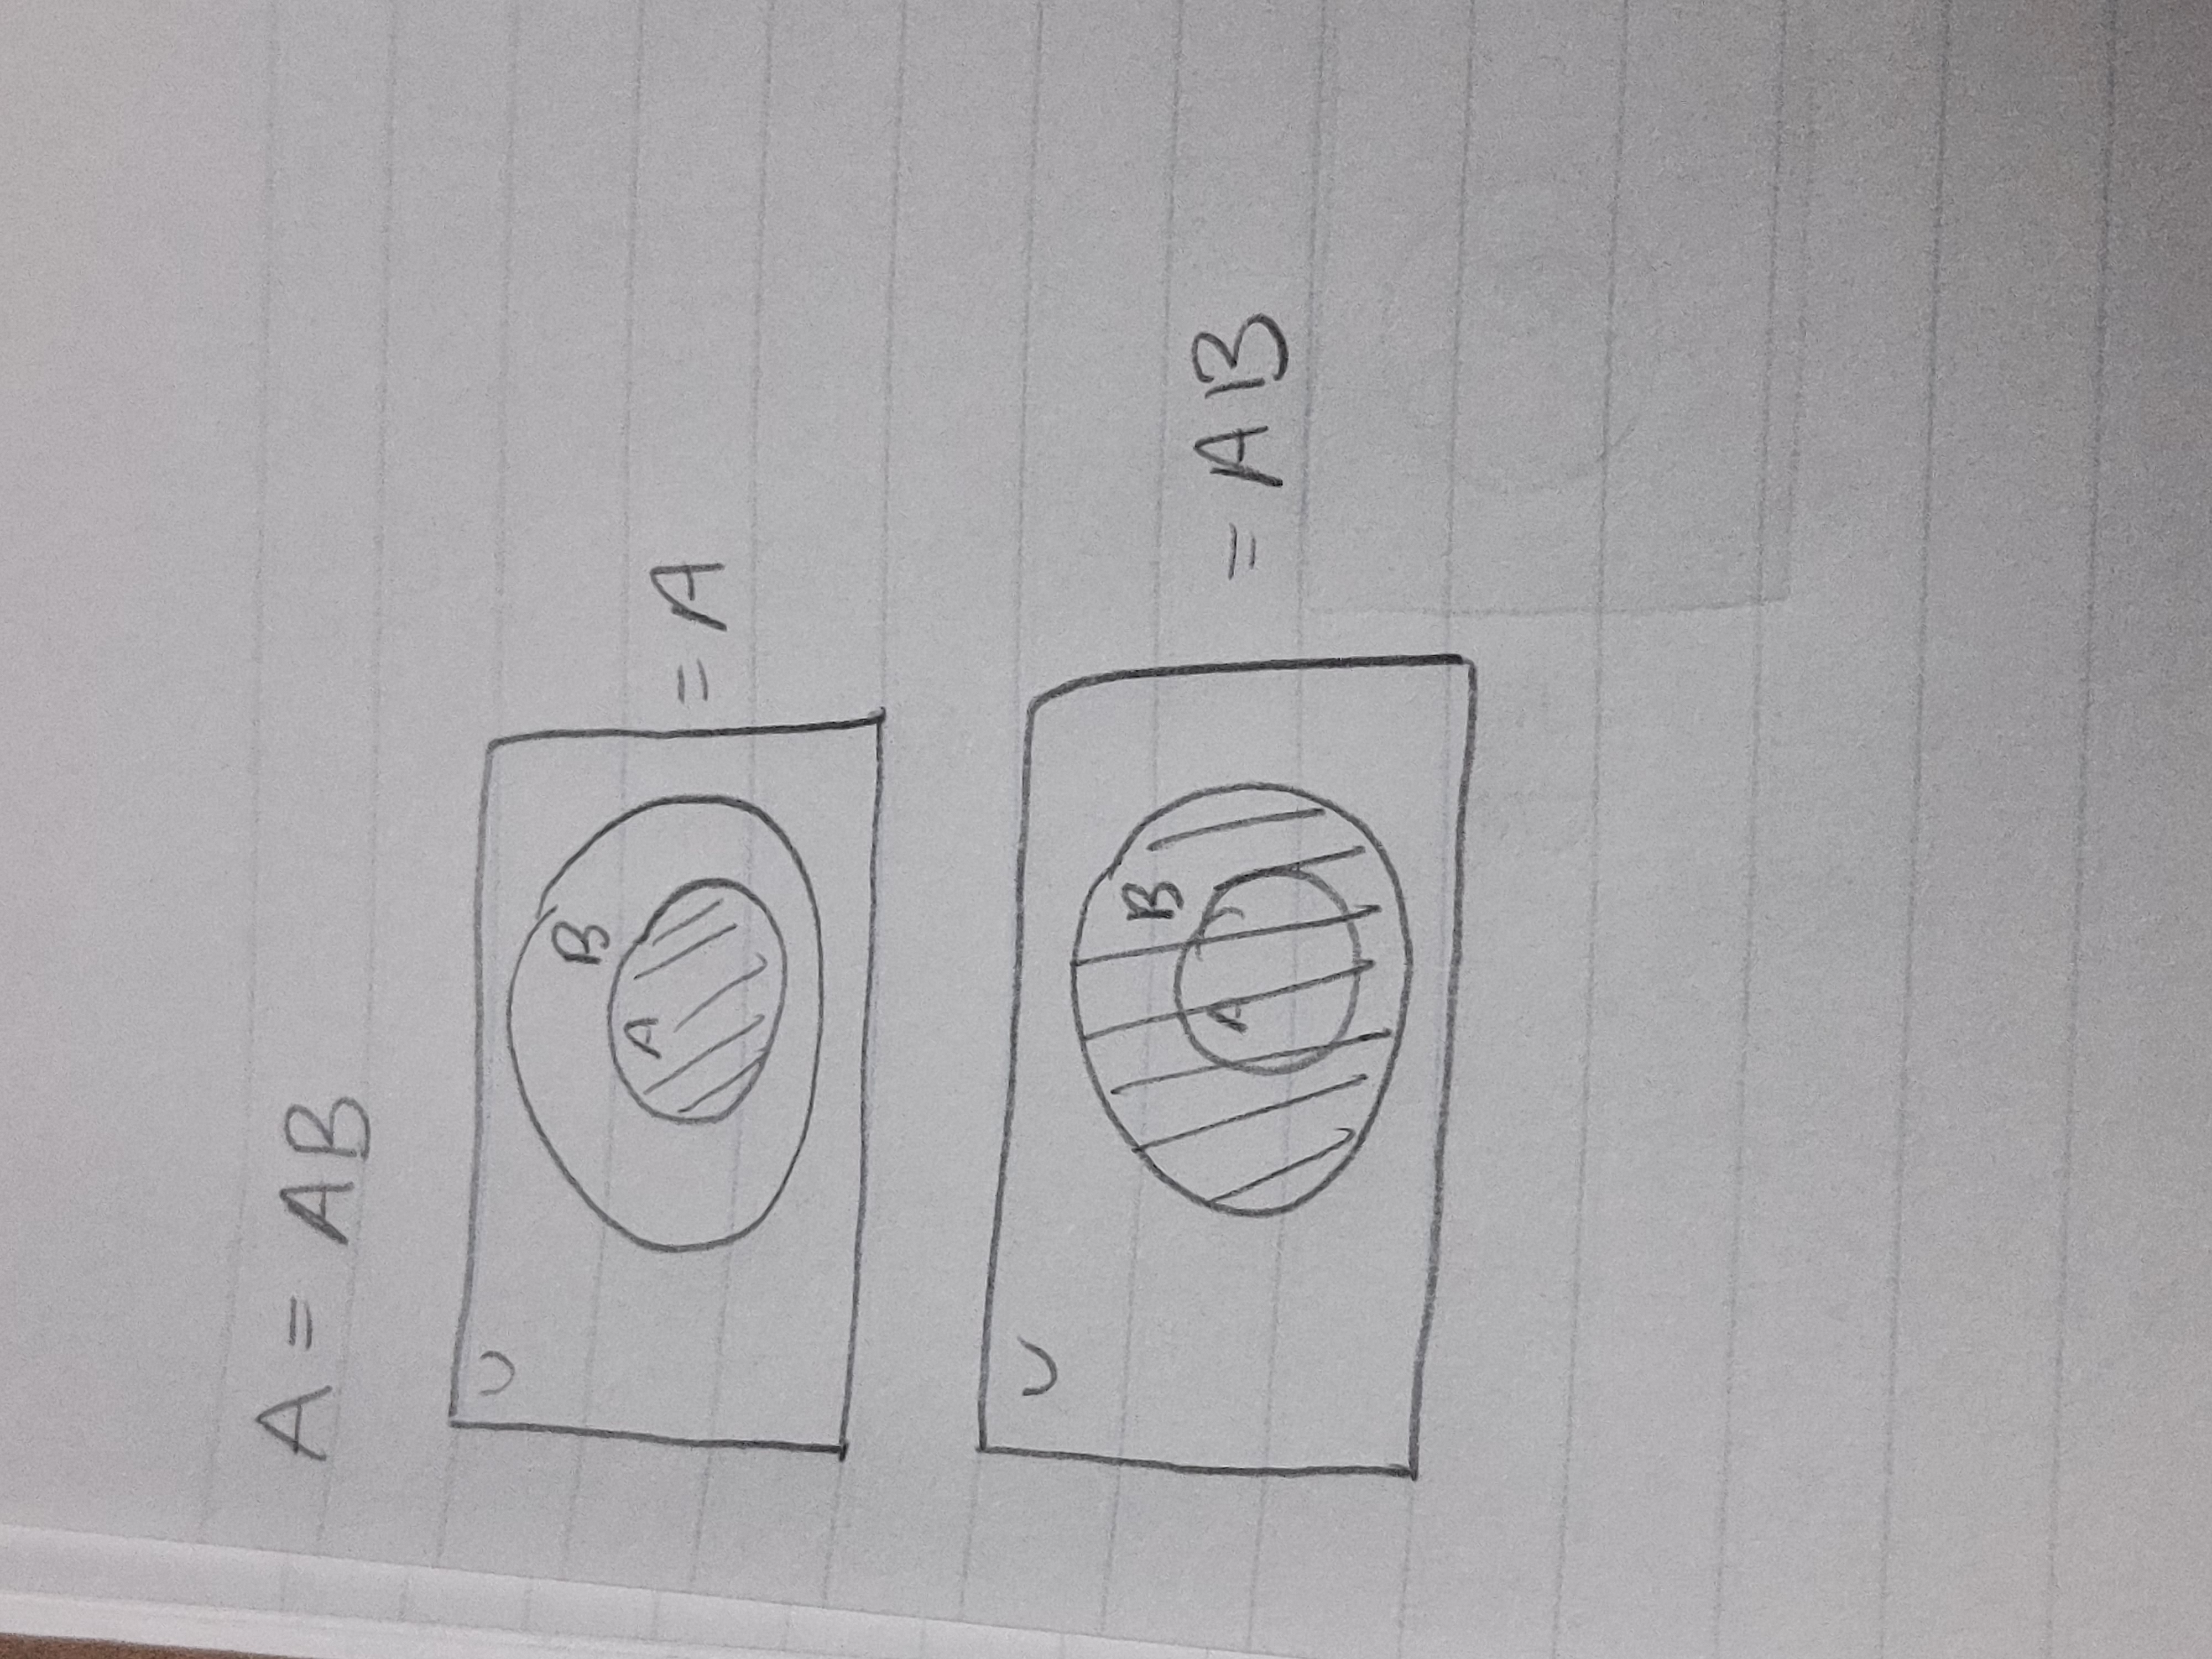 A = AB
U
B
A
= A
U
B
A
= AB